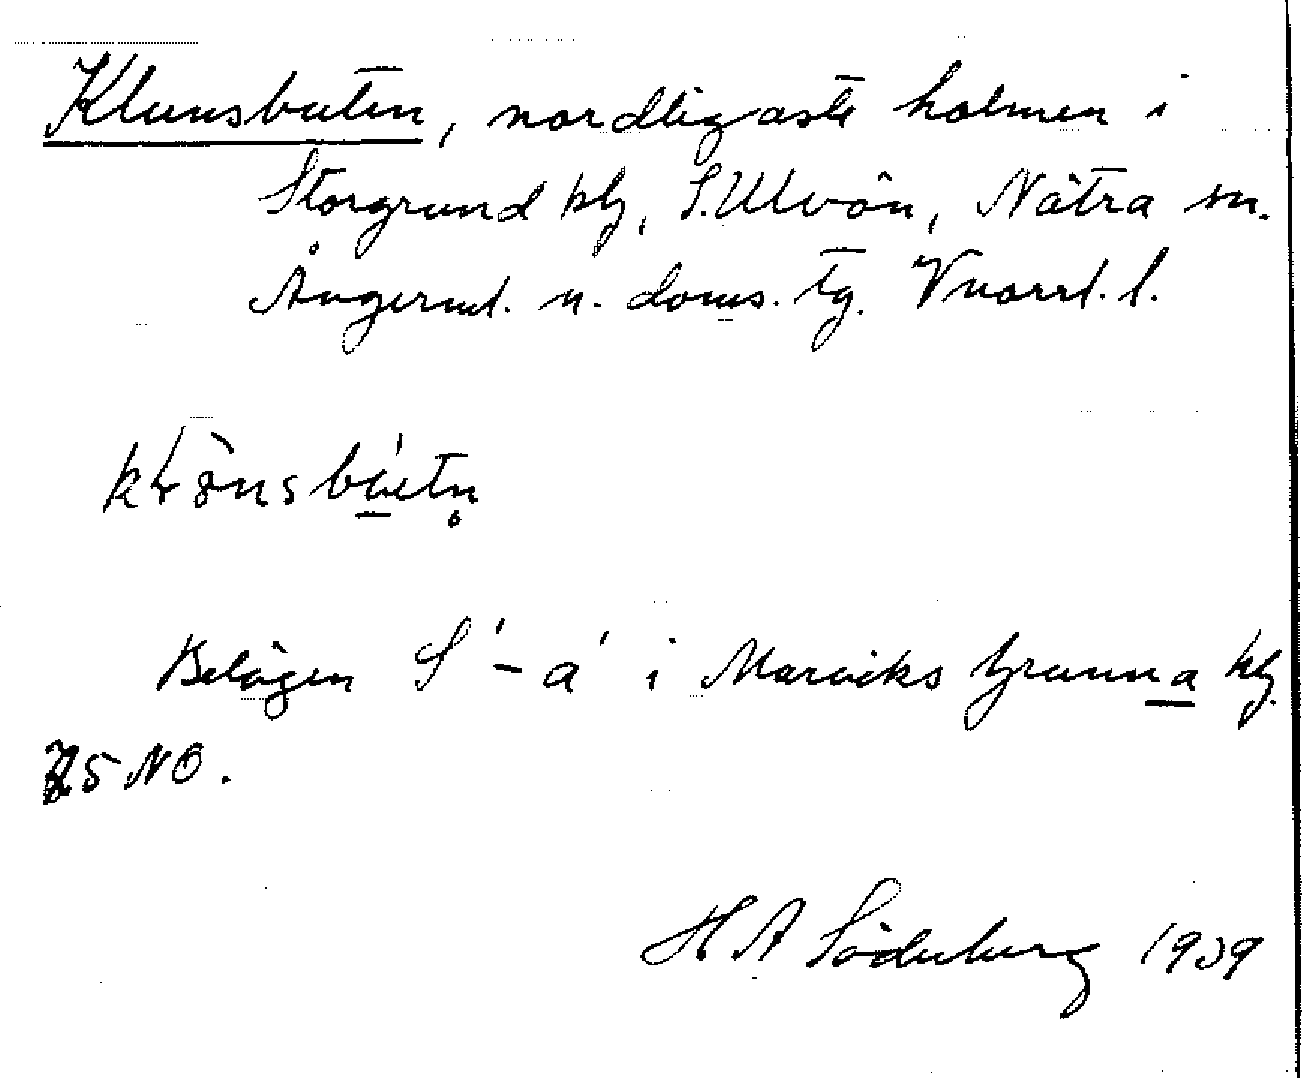 Klunsbuten, nordligaste holmen i
Storgrund klg, S. Ulvön, Nätra sn.
Ångerml. n. doms. tg. Vnorrl. l.
Belägen S' – a' i Marviks grunna klg
75 NO.
H A Söderberg 1939